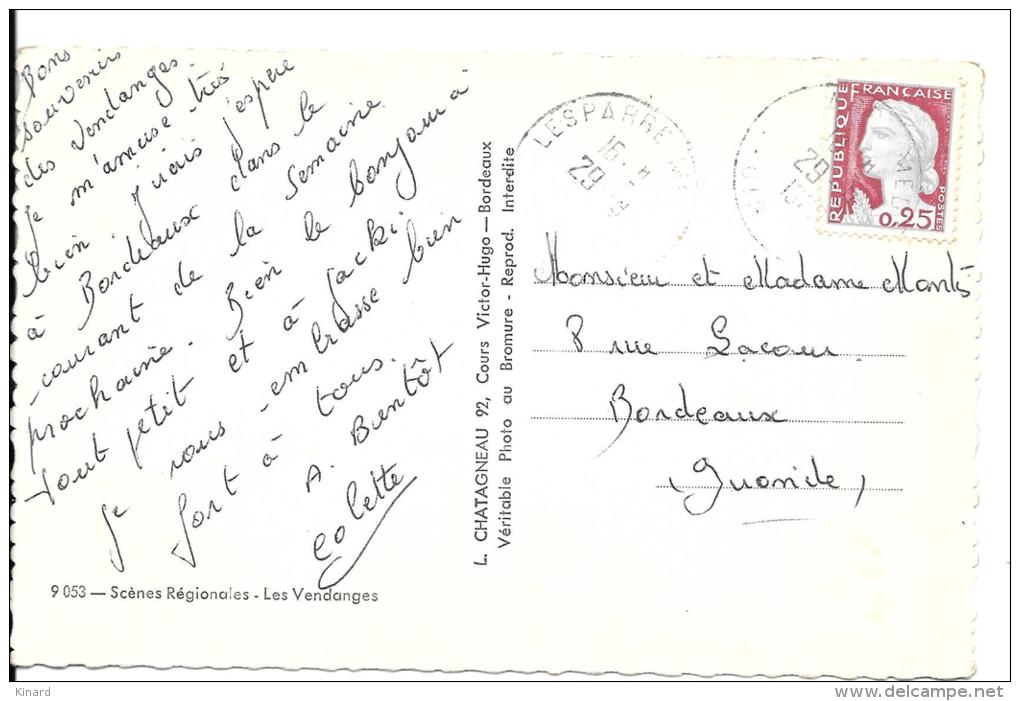 Bons
souvenirs
des vendanges.
Je m'amuse très
bien. J'irais j'espère
à Bordeaux dans le
courant de la semaine
prochaine. Bien le bonjour à
tout petit et à Jacki
Je vous embrasse bien
fort à tous.
A Bientôt
Colette
9 053 — Scènes Régionales - Les Vendanges
L. CHATAGNEAU 92, Cours Victor-Hugo — Bordeaux
Véritable Photo au Bromure - Reprod. Interdite
LESPARRE
16
29
29
RÉPUBLIQUE FRANÇAISE
0,25
POSTES
Monsieur et Madame
8 rue Lacour
Bordeaux
(Gironde)
Kinard
delcampe.net